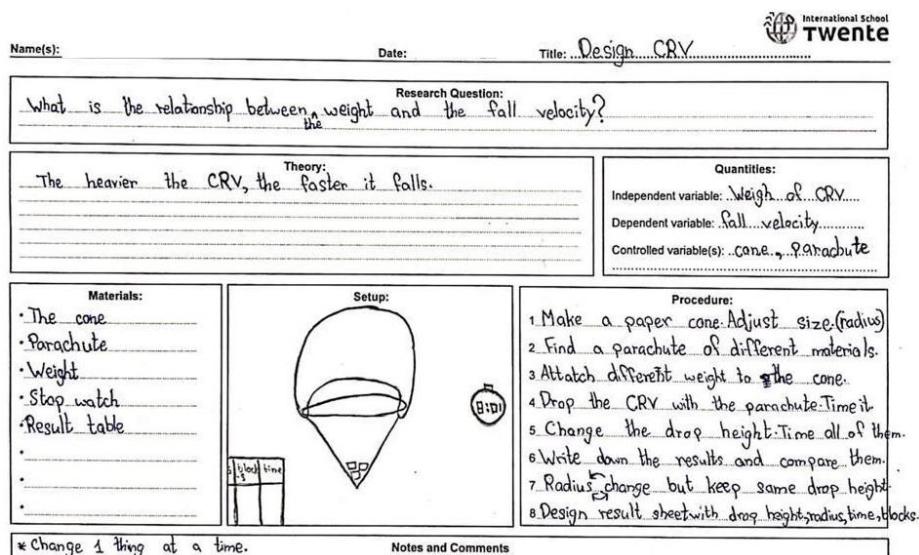 International School
Twente
Name(s):
Date:
Title: Design CRV
Research Question:
What is the relationship between the weight and the fall velocity?
Theory:
The heavier the CRV, the faster it falls.
Quantities:
Independent variable: Weigh of CRV
Dependent variable: fall velocity
Controlled variable(s): cone, Parachute
Materials:
• The cone
• Parachute
• Weight
• Stop watch
• Result table
•
•
•
Setup:
block
s
time
Procedure:
1 Make a paper cone. Adjust size (radius)
2 Find a parachute of different materials.
3 Attatch different weight to the cone.
4 Drop the CRV with the parachute. Time it
5 Change the drop height. Time all of them.
6 Write down the results and compare them.
7 Radius change but keep same drop height
8 Design result sheet with drop height, radius, time, blocks.
* Change 1 thing at a time.
Notes and Comments